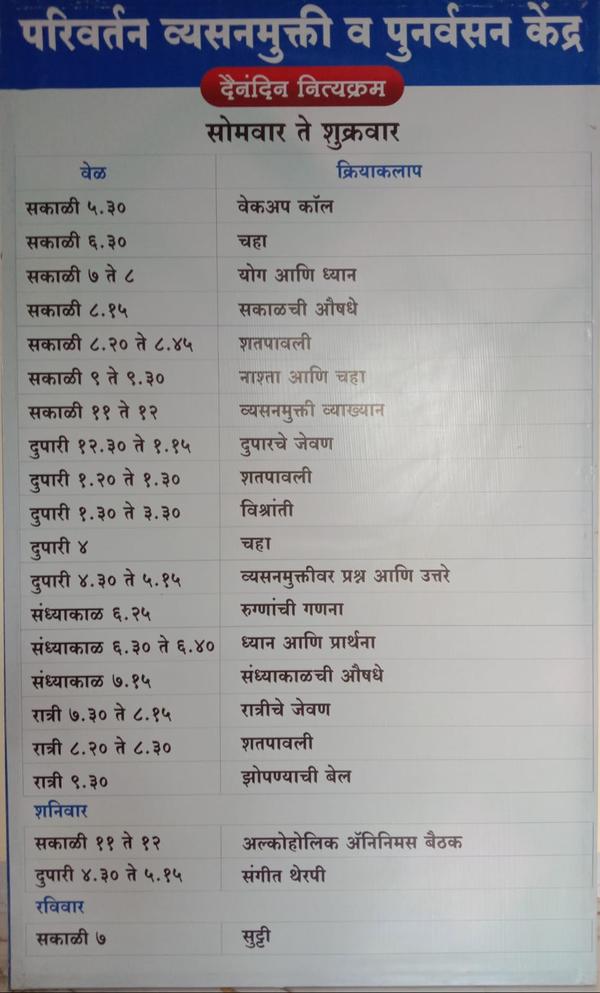 परिवर्तन व्यसनमुक्ती व पुनर्वसन केंद्र
दैनंदिन नित्यक्रम
सोमवार ते शुक्रवार
वेळ क्रियाकलाप
सकाळी ५.३० वेकअप कॉल
सकाळी ६.३० चहा
सकाळी ७ ते ८ योग आणि ध्यान
सकाळी ८.१५ सकाळची औषधे
सकाळी ८.२० ते ८.४५ शतपावली
सकाळी ९ ते ९.३० नाश्ता आणि चहा
सकाळी ११ ते १२ व्यसनमुक्ती व्याख्यान
दुपारी १२.३० ते १.१५ दुपारचे जेवण
दुपारी १.२० ते १.३० शतपावली
दुपारी १.३० ते ३.३० विश्रांती
दुपारी ४ चहा
दुपारी ४.३० ते ५.१५ व्यसनमुक्तीवर प्रश्न आणि उत्तरे
संध्याकाळ ६.२५ रुग्णांची गणना
संध्याकाळ ६.३० ते ६.४० ध्यान आणि प्रार्थना
संध्याकाळ ७.१५ संध्याकाळची औषधे
रात्री ७.३० ते ८.१५ रात्रीचे जेवण
रात्री ८.२० ते ८.३० शतपावली
रात्री ९.३० झोपण्याची बेल
शनिवार
सकाळी ११ ते १२ अल्कोहोलिक ॲनिनिमस बैठक
दुपारी ४.३० ते ५.१५ संगीत थेरपी
रविवार
सकाळी ७ सुट्टी